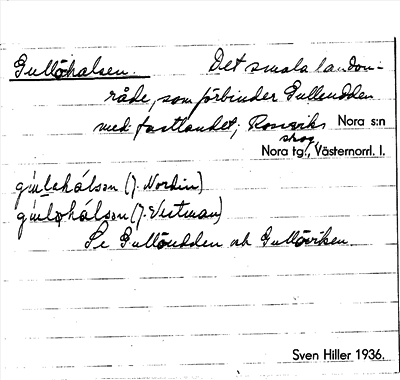 Gullöhalsen. Det smala landom-
råde, som förbinder Gulleudden
med fastlandet, Rosseviks Nora s:n
skog,
Nora tg., Västernorrl. l.
(J. Nordin)
(J. Vestman)
Se Gullöudden och Gullöviken.
Sven Hiller 1936.